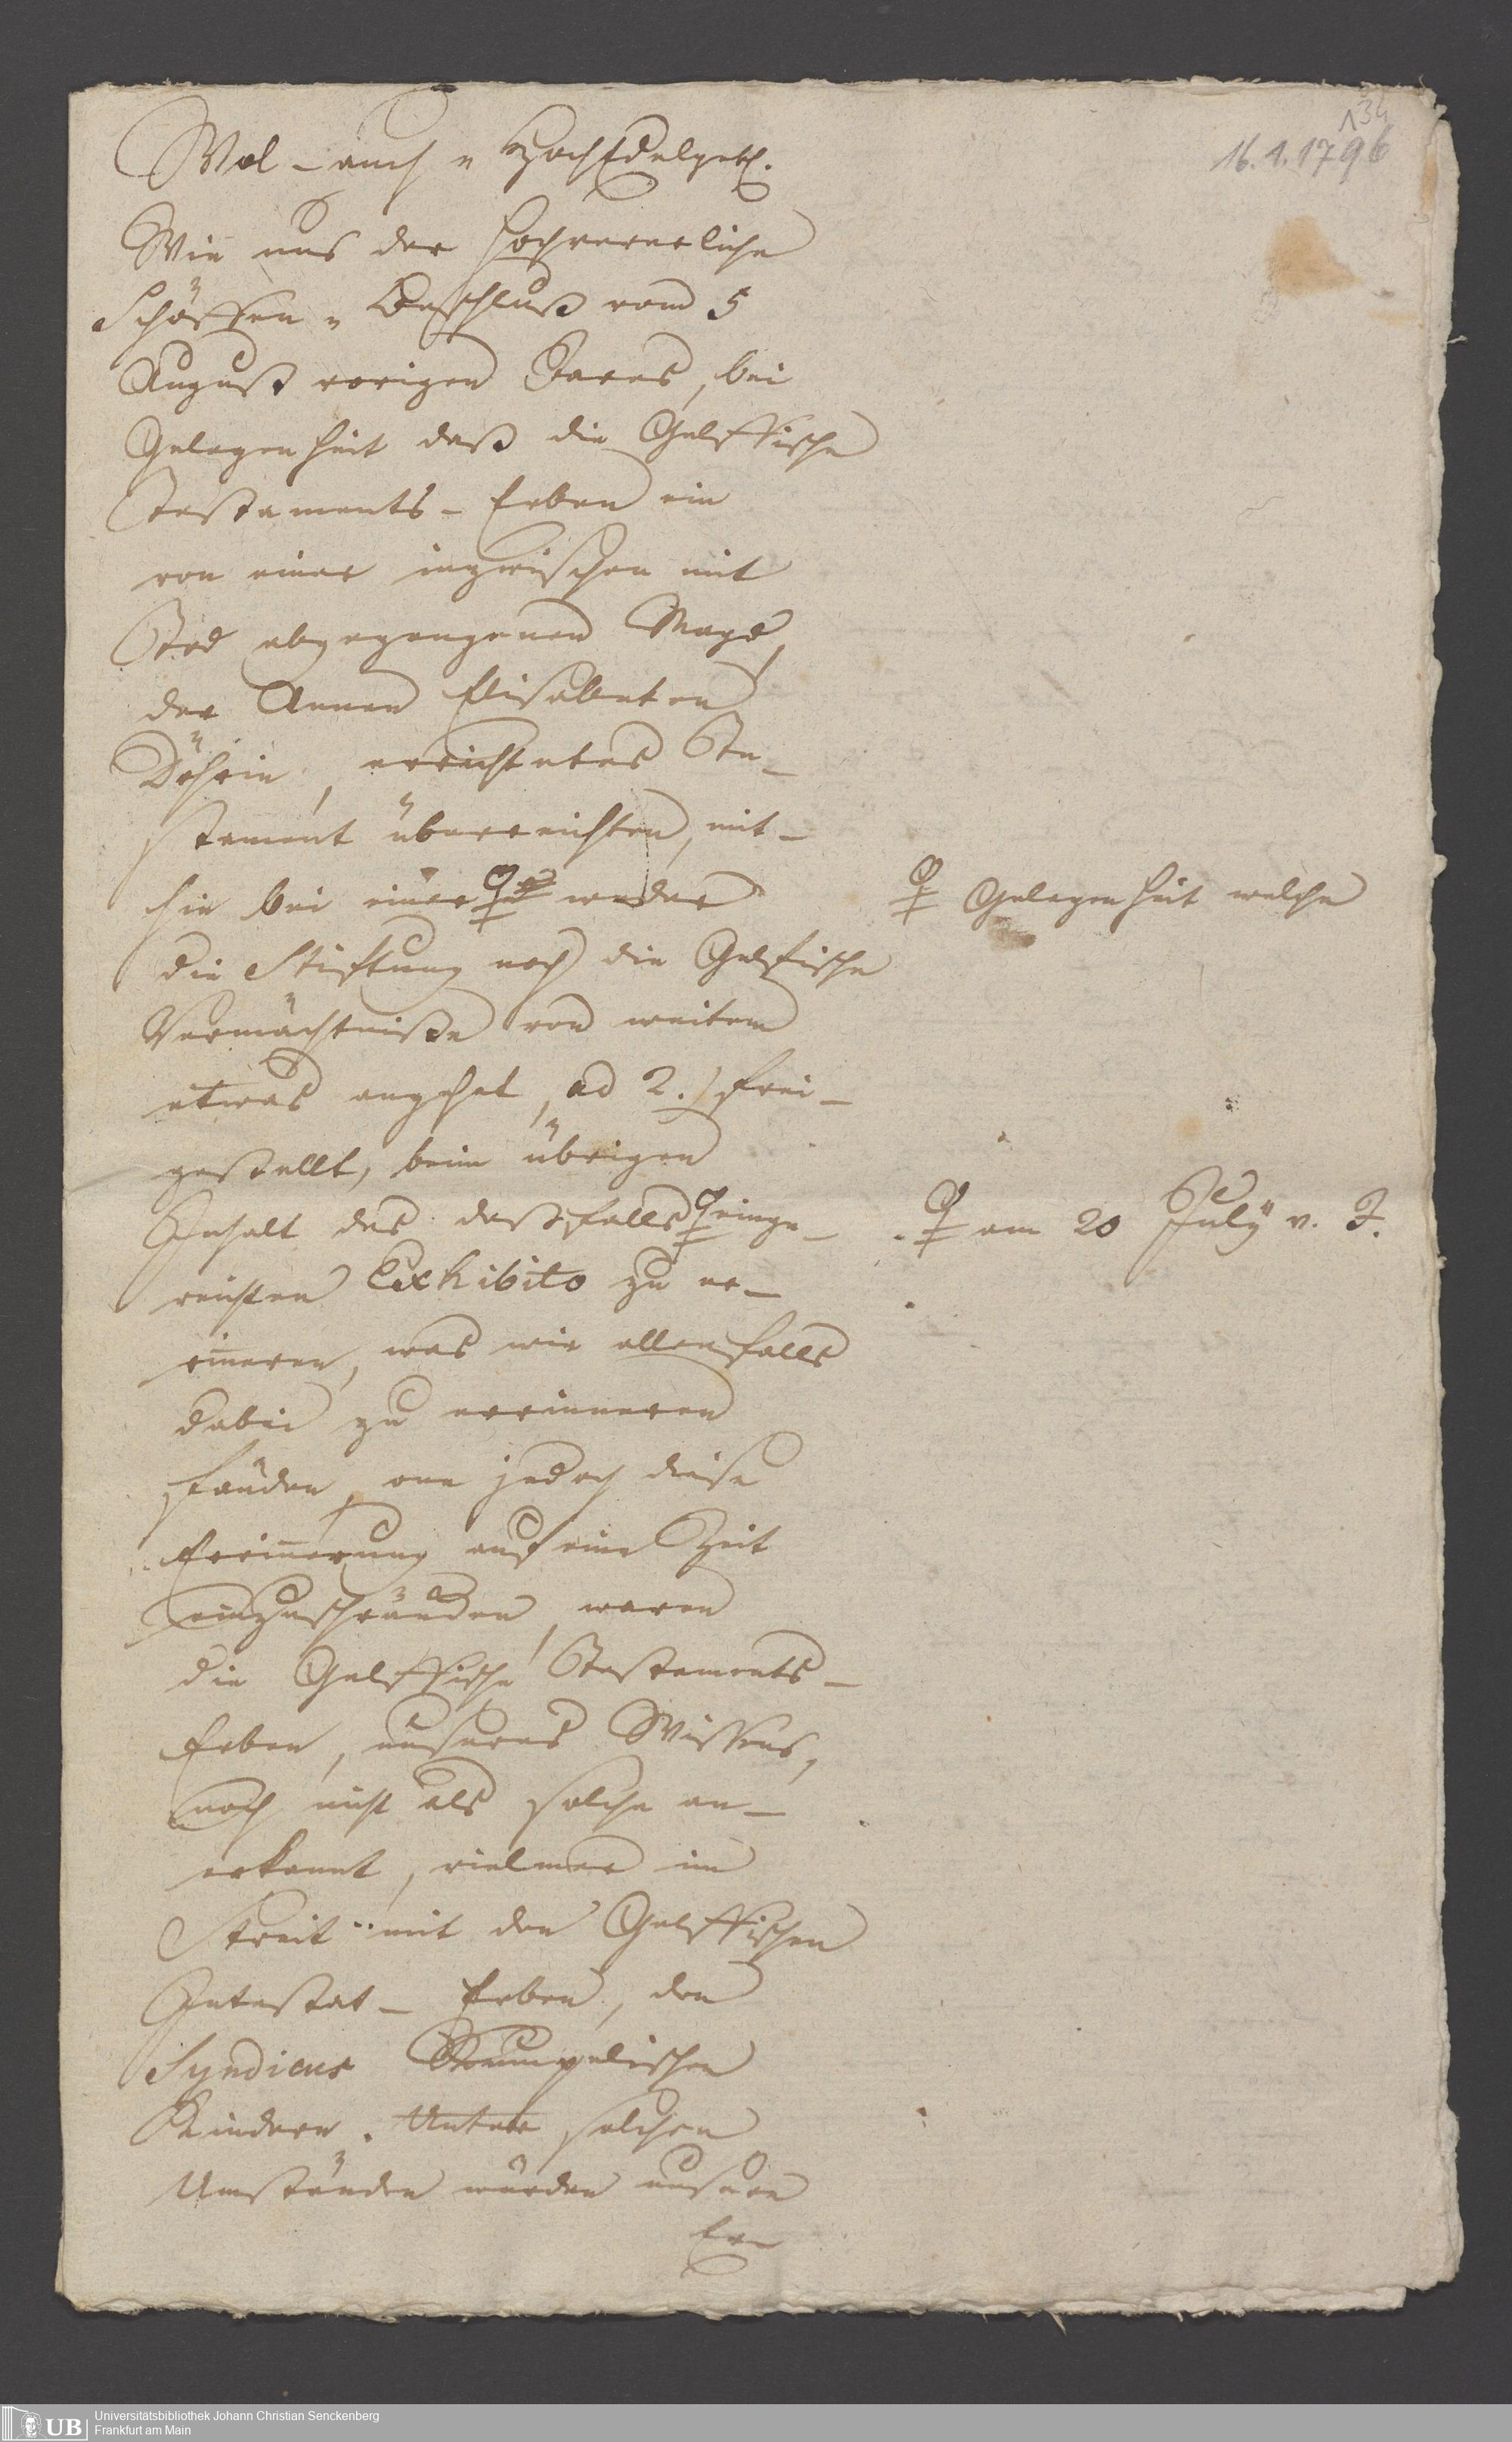 134
16.1.1796
Wol- auch HochEdelgeb.
Wie uns der hochvererliche
Schöffen-Beschluß vom 5
August vorigen Jares, bei
Gelegenheit daß die Gelffische
Testaments-Erben ein
von einer inzwischen mit
Tod abgegangenen Magd,
der Annen Elisabeten
Döhrin, errichtetes Te-
stament überreichten, mit-
hin bei einer weder
♀ Gelegenheit welche
die Stiftung noch die Gelfische
Vermächtniße von weitem
etwas angehet, ad 2.) frei-
gestellt, beim übrigen
Inhalt des deßfalls ♀ einge-
♀ am 20 July v. J.
reichten Exhibito zu er-
rinneren, was wir allenfalls
dabei zu errinneren
fänden, one jedoch diese
Erinnerung auf eine Zeit
einzuschränken, waren
die Gelffische Testaments-
Erben, unseres Wissens,
noch nicht als solche an-
erkannt, vielmer im
Streit mit den Gelffischen
Intestat-Erben, den
Syndicus Rumpelischen
Kindern. Unter solchen
Umständen würden unsere
Er-
UB
Universitätsbibliothek Johann Christian Senckenberg
Frankfurt am Main